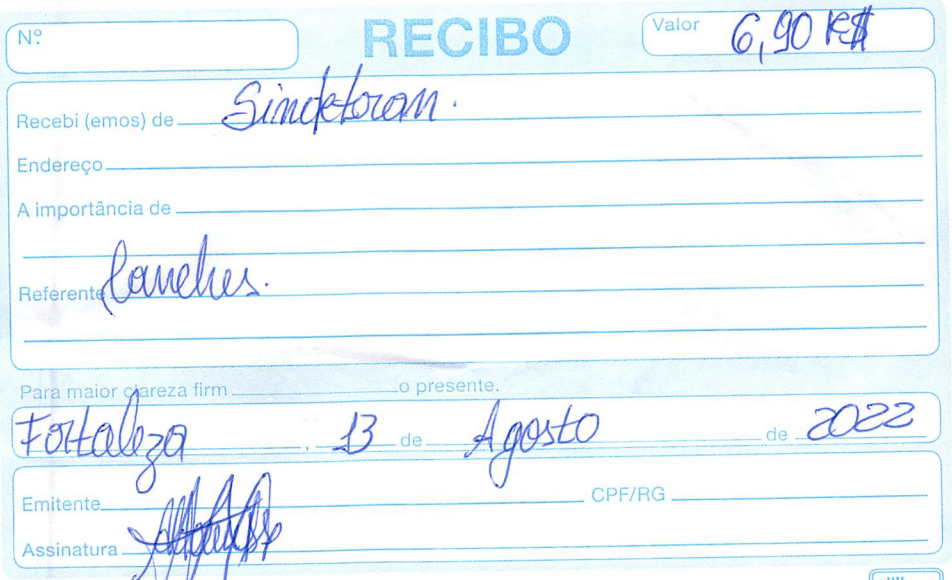 Nº
RECIBO
Valor 6,90 R$
Recebi (emos) de Sindetran.
Endereço
A importância de
Referente Lanches.
Para maior clareza firm o presente.
Fortaleza, 13 de Agosto de 2022
Emitente CPF/RG
Assinatura